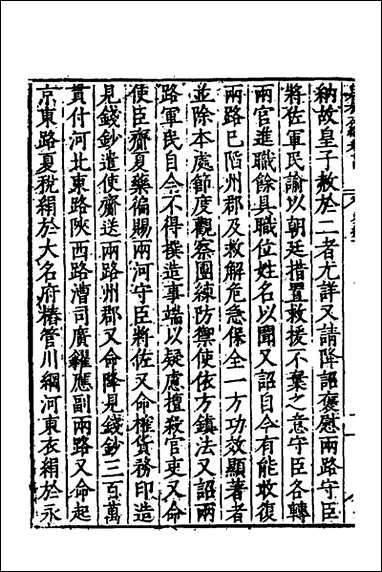 納故皇子赦於二者尤詳又請降詔褒慰兩路守臣
將佐軍民諭以朝廷措置救援不棄之意守臣各轉
兩官進職餘具職位姓名以聞又詔自今有能收復
兩路已陷州郡及救解危急保全一方功效顯著者
並除本處節度觀察團練防禦使依方鎮法又詔兩
路軍民自今不得撰造事端以疑慮擅殺官吏又命
使臣齎夏藥徧賜兩河守臣將佐又命榷貨務印造
見錢鈔遣使齎送兩路州郡又命降見錢鈔三百萬
貫付河北東路陝西路漕司廣糴應副兩路又命起
京東路夏稅絹於大名府樁管川綱河東衣絹於永